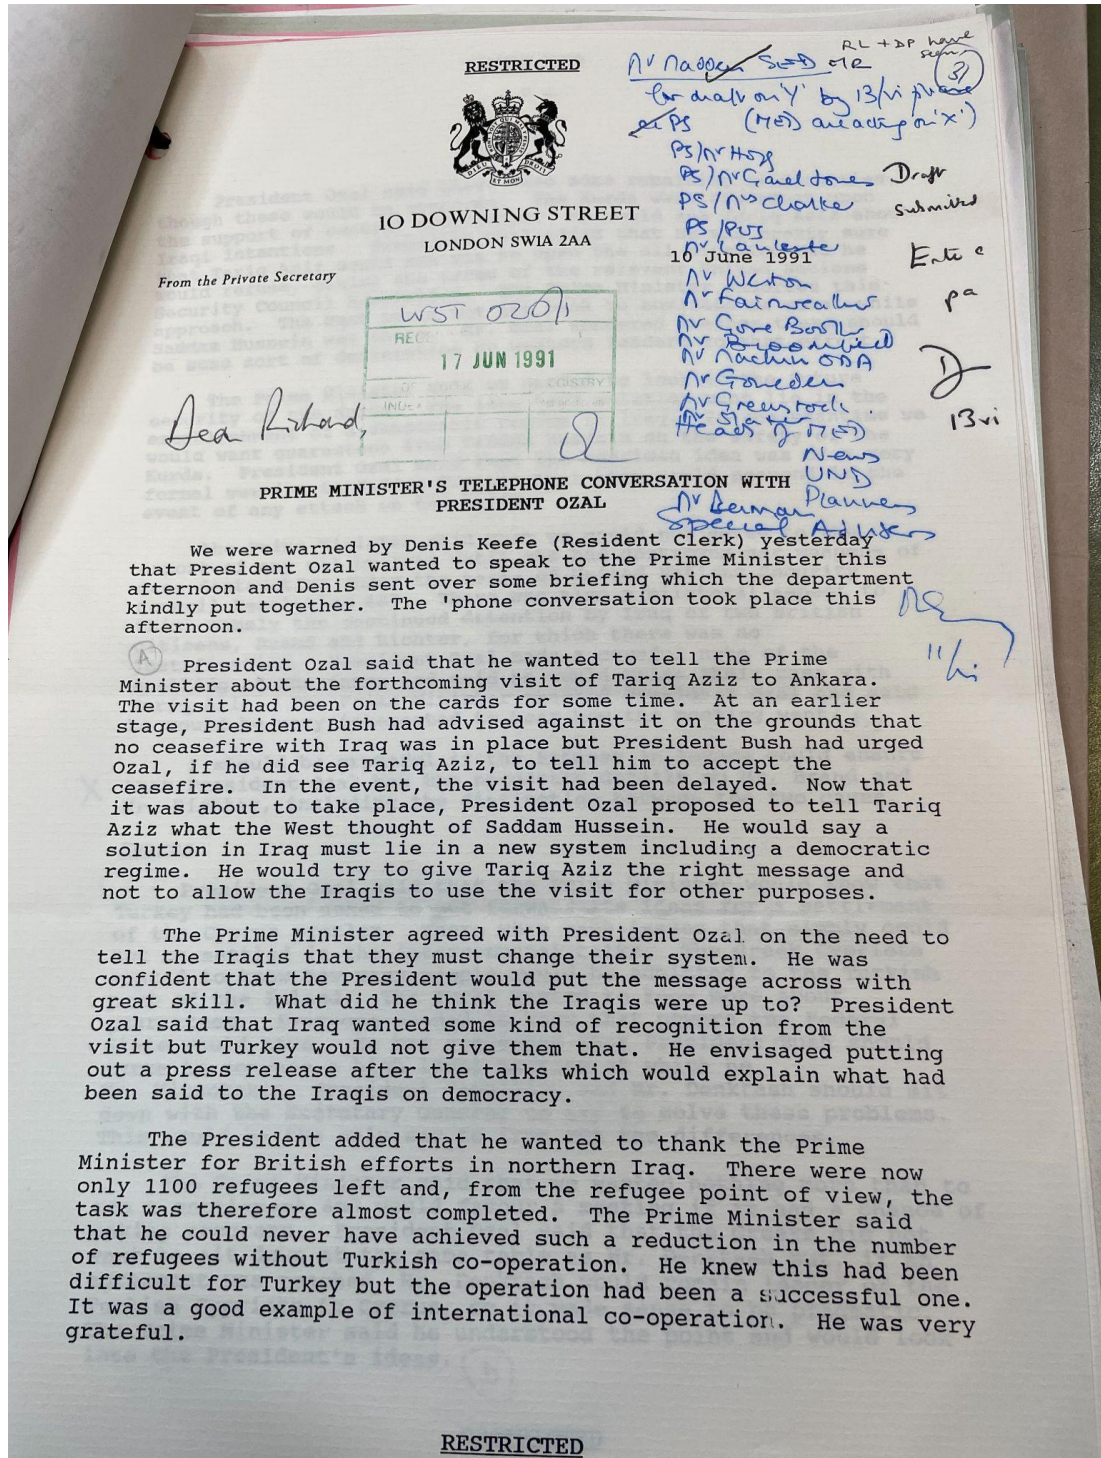 RESTRICTED
RL + DP have
seen
31
Mr Madden SED MR
for draft on 'Y' by 13/vi please
(MED are acting on 'X')
PS
PS/Mr Hogg
PS/Mr Garel Jones
PS/Mrs Chalker
PS/PUS
Draft
submitted
Enter
pa
D
13 vi
10 DOWNING STREET
LONDON SW1A 2AA
From the Private Secretary
10 June 1991
Mr Weston
Mr Fairweather
Mr Gore Booth
Mr Broomfield
Mr Machin ODA
Mr Goulden
Mr Greenstock
Mr Slater
Heads of MED
News
UND
Planners
Mr Berman
Special Advisers
WST 020/1
17 JUN 1991
REGISTRY
INDEX
Dear Richard,
PRIME MINISTER'S TELEPHONE CONVERSATION WITH
PRESIDENT OZAL
We were warned by Denis Keefe (Resident Clerk) yesterday
that President Ozal wanted to speak to the Prime Minister this
afternoon and Denis sent over some briefing which the department
kindly put together. The 'phone conversation took place this
afternoon.
11/vi
A
President Ozal said that he wanted to tell the Prime
Minister about the forthcoming visit of Tariq Aziz to Ankara.
The visit had been on the cards for some time. At an earlier
stage, President Bush had advised against it on the grounds that
no ceasefire with Iraq was in place but President Bush had urged
Ozal, if he did see Tariq Aziz, to tell him to accept the
ceasefire. In the event, the visit had been delayed. Now that
it was about to take place, President Ozal proposed to tell Tariq
Aziz what the West thought of Saddam Hussein. He would say a
solution in Iraq must lie in a new system including a democratic
regime. He would try to give Tariq Aziz the right message and
not to allow the Iraqis to use the visit for other purposes.
The Prime Minister agreed with President Ozal on the need to
tell the Iraqis that they must change their system. He was
confident that the President would put the message across with
great skill. What did he think the Iraqis were up to? President
Ozal said that Iraq wanted some kind of recognition from the
visit but Turkey would not give them that. He envisaged putting
out a press release after the talks which would explain what had
been said to the Iraqis on democracy.
The President added that he wanted to thank the Prime
Minister for British efforts in northern Iraq. There were now
only 1100 refugees left and, from the refugee point of view, the
task was therefore almost completed. The Prime Minister said
that he could never have achieved such a reduction in the number
of refugees without Turkish co-operation. He knew this had been
difficult for Turkey but the operation had been a successful one.
It was a good example of international co-operation. He was very
grateful.
RESTRICTED